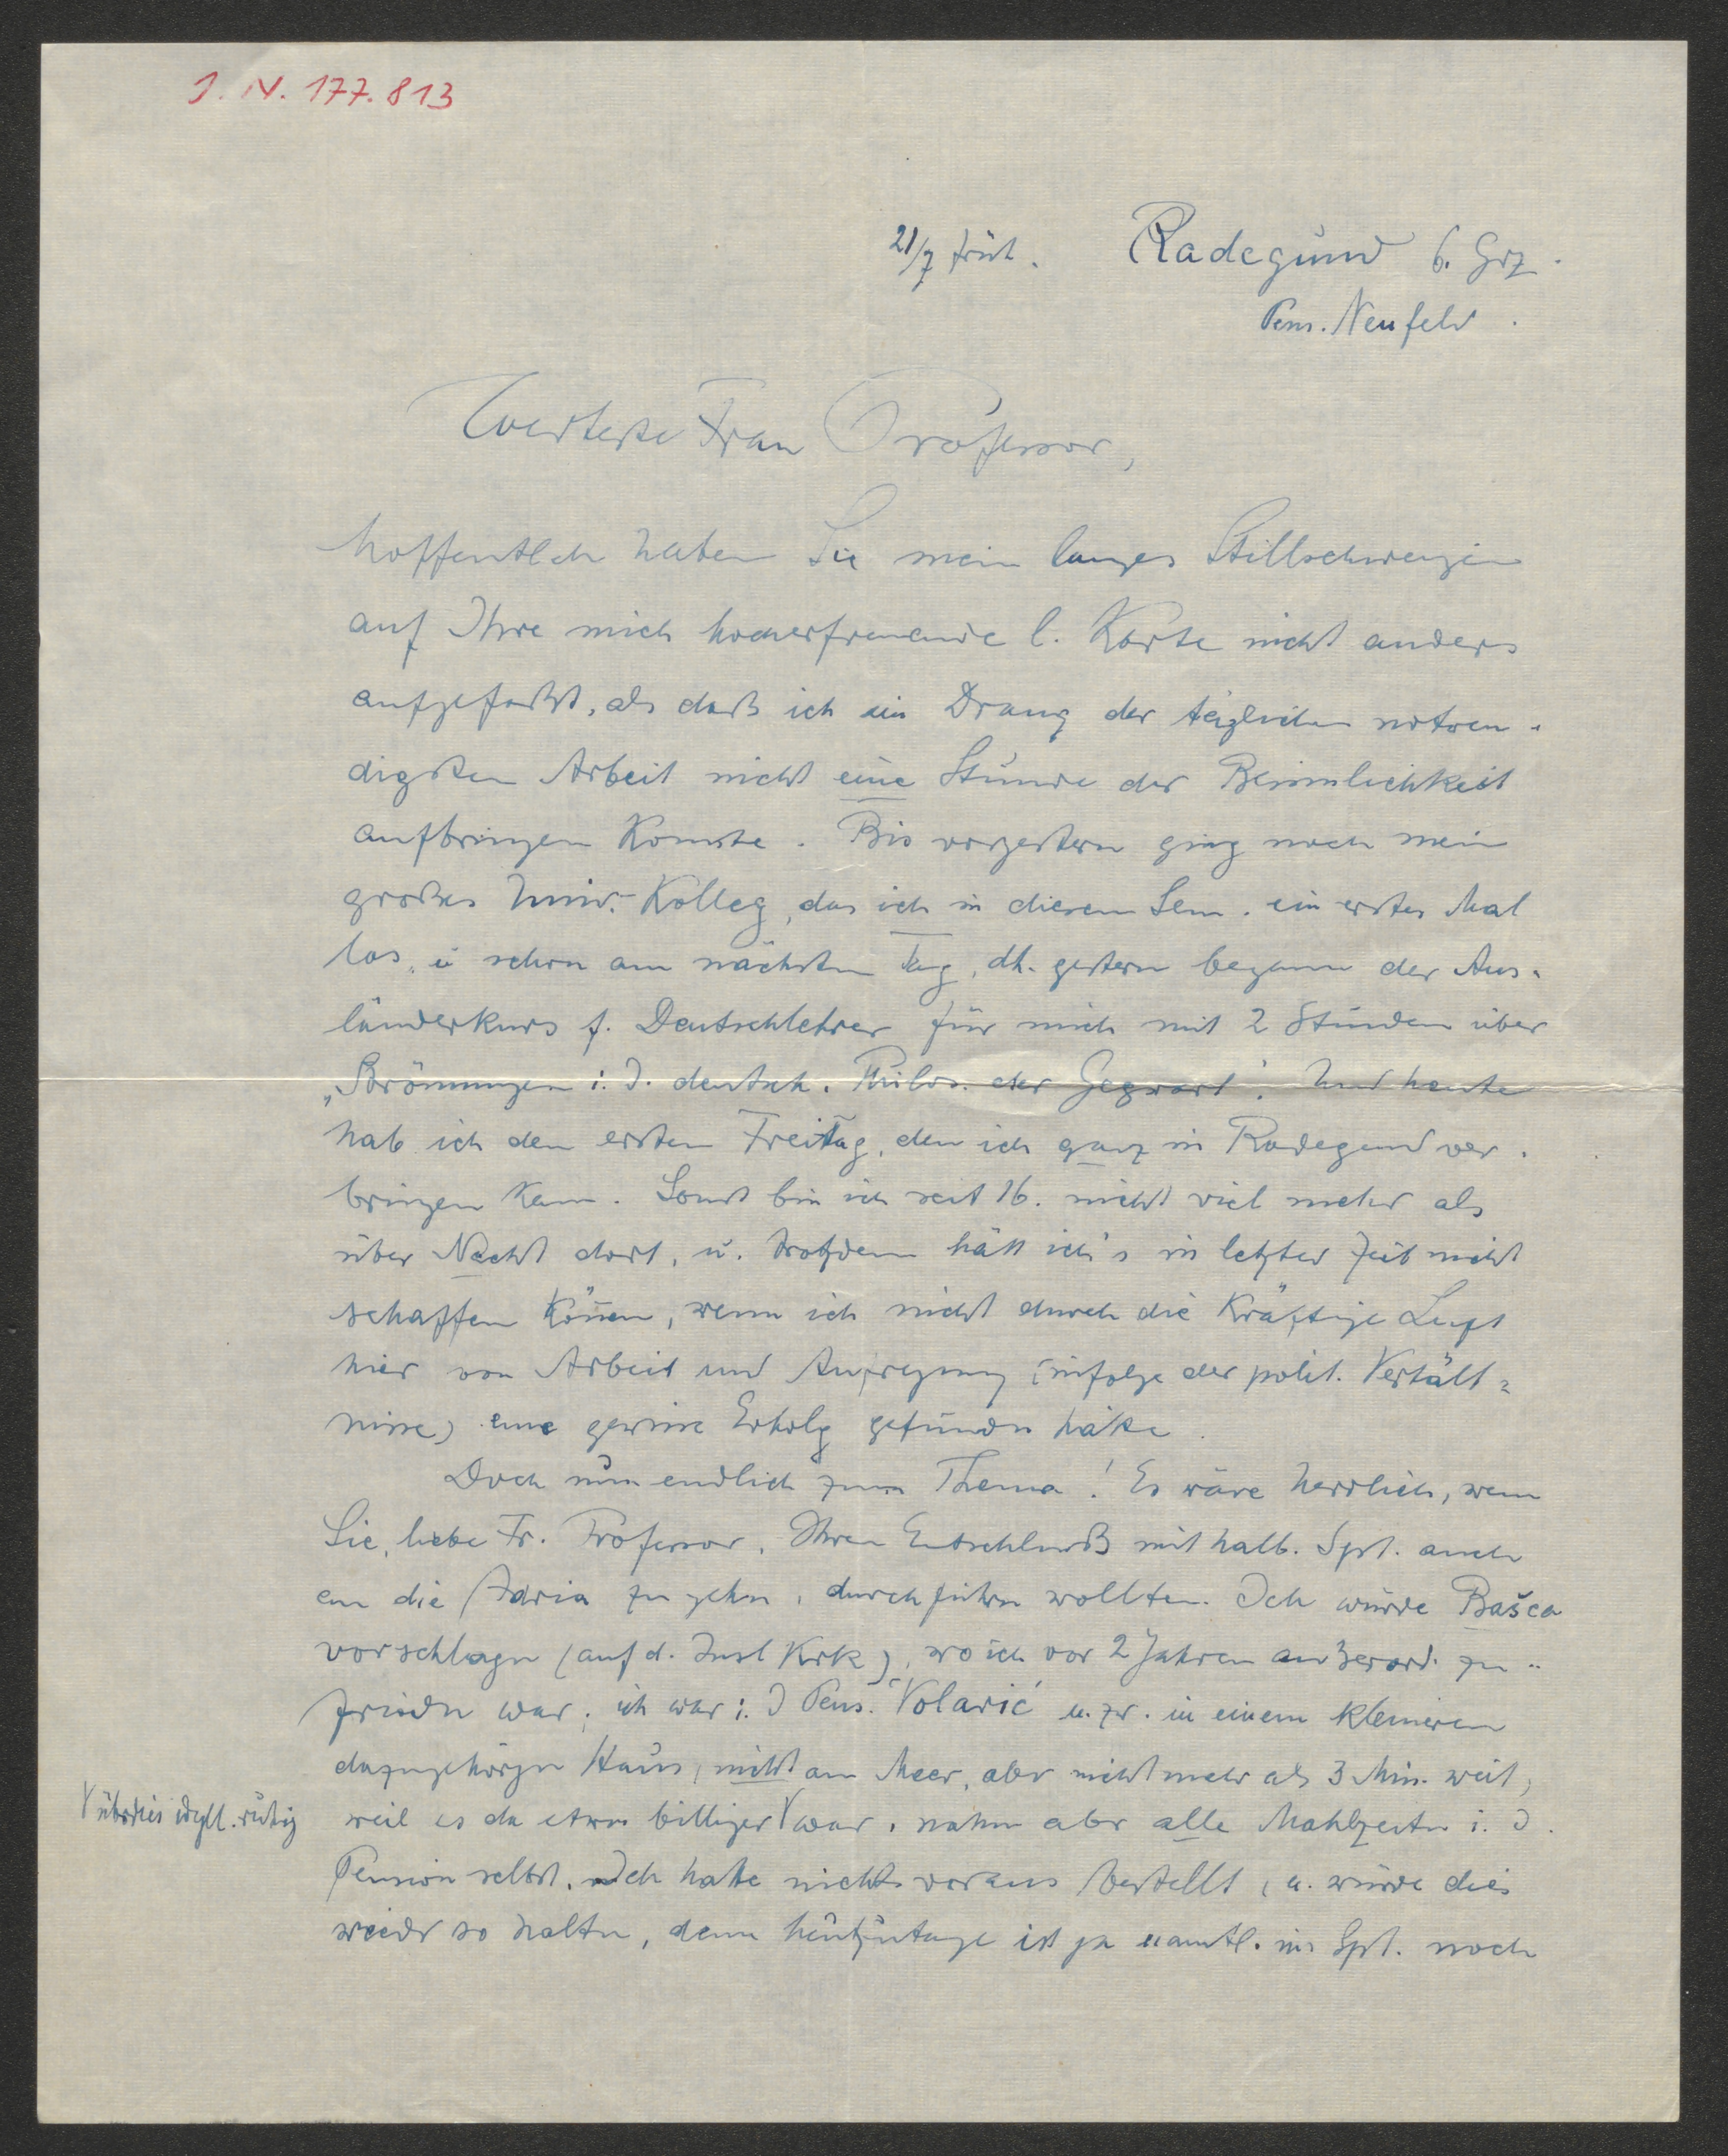 J. N. 177.813
21/7 früh. Radegund b. Grz.
Pens. Neufeld.
Werteste Frau Professor,
hoffentlich haben Sie mein langes Stillschweigen
auf Ihre mich hocherfreuende l. Karte nicht anders
aufgefaßt, als daß ich im Drang der täglichen notwen-
digsten Arbeit nicht eine Stunde der Besinnlichkeit
aufbringen konnte. Bis vorgestern ging noch mein
großes Univ. Kolleg, das ich in diesem Sem. ein erstes Mal
las, u schon am nächsten Tag, dh. gestern begann der Aus-
länderkurs f. Deutschlehrer für mich mit 2 Stunden über
„Strömungen i. d. deutsch. Philos. der Gegwart“. Und heute
hab ich den ersten Freitag, den ich ganz in Radegund ver-
bringen kann. Sonst bin ich seit 16. nicht viel mehr als
über Nacht dort, u. trotzdem hätt ich's in letzter Zeit nicht
schaffen können, wenn ich nicht durch die kräftige Luft
hier von Arbeit und Aufregung (infolge der polit. Verhält-
nisse) eine gewisse Erholg gefunden hätte.
Doch nun endlich zum Thema! Es wäre herrlich, wenn
Sie, liebe Fr. Professor, Ihren Entschluß mit halb. Spt. auch
an die Adria zu gehn, durchführn wollten. Ich würde Bašca
vorschlagn (auf d. Insl Krk), wo ich vor 2 Jahren außerord. zu-
friedn war; ich war i. d Pens. Volarić u. zw. in einem kleineren
dazugehörgn Haus, nicht am Meer, abr nicht mehr als 3 Min. weit,
weil es da etwas billiger V war, nahm abr alle Mahlzeitn i. d.
V überdies idyll. ruhig
Pension selbst. Ich hatte nichts voraus bestellt, u. würde dies
wiedr so haltn, denn heutzutage ist ja namtl. im Spt. noch